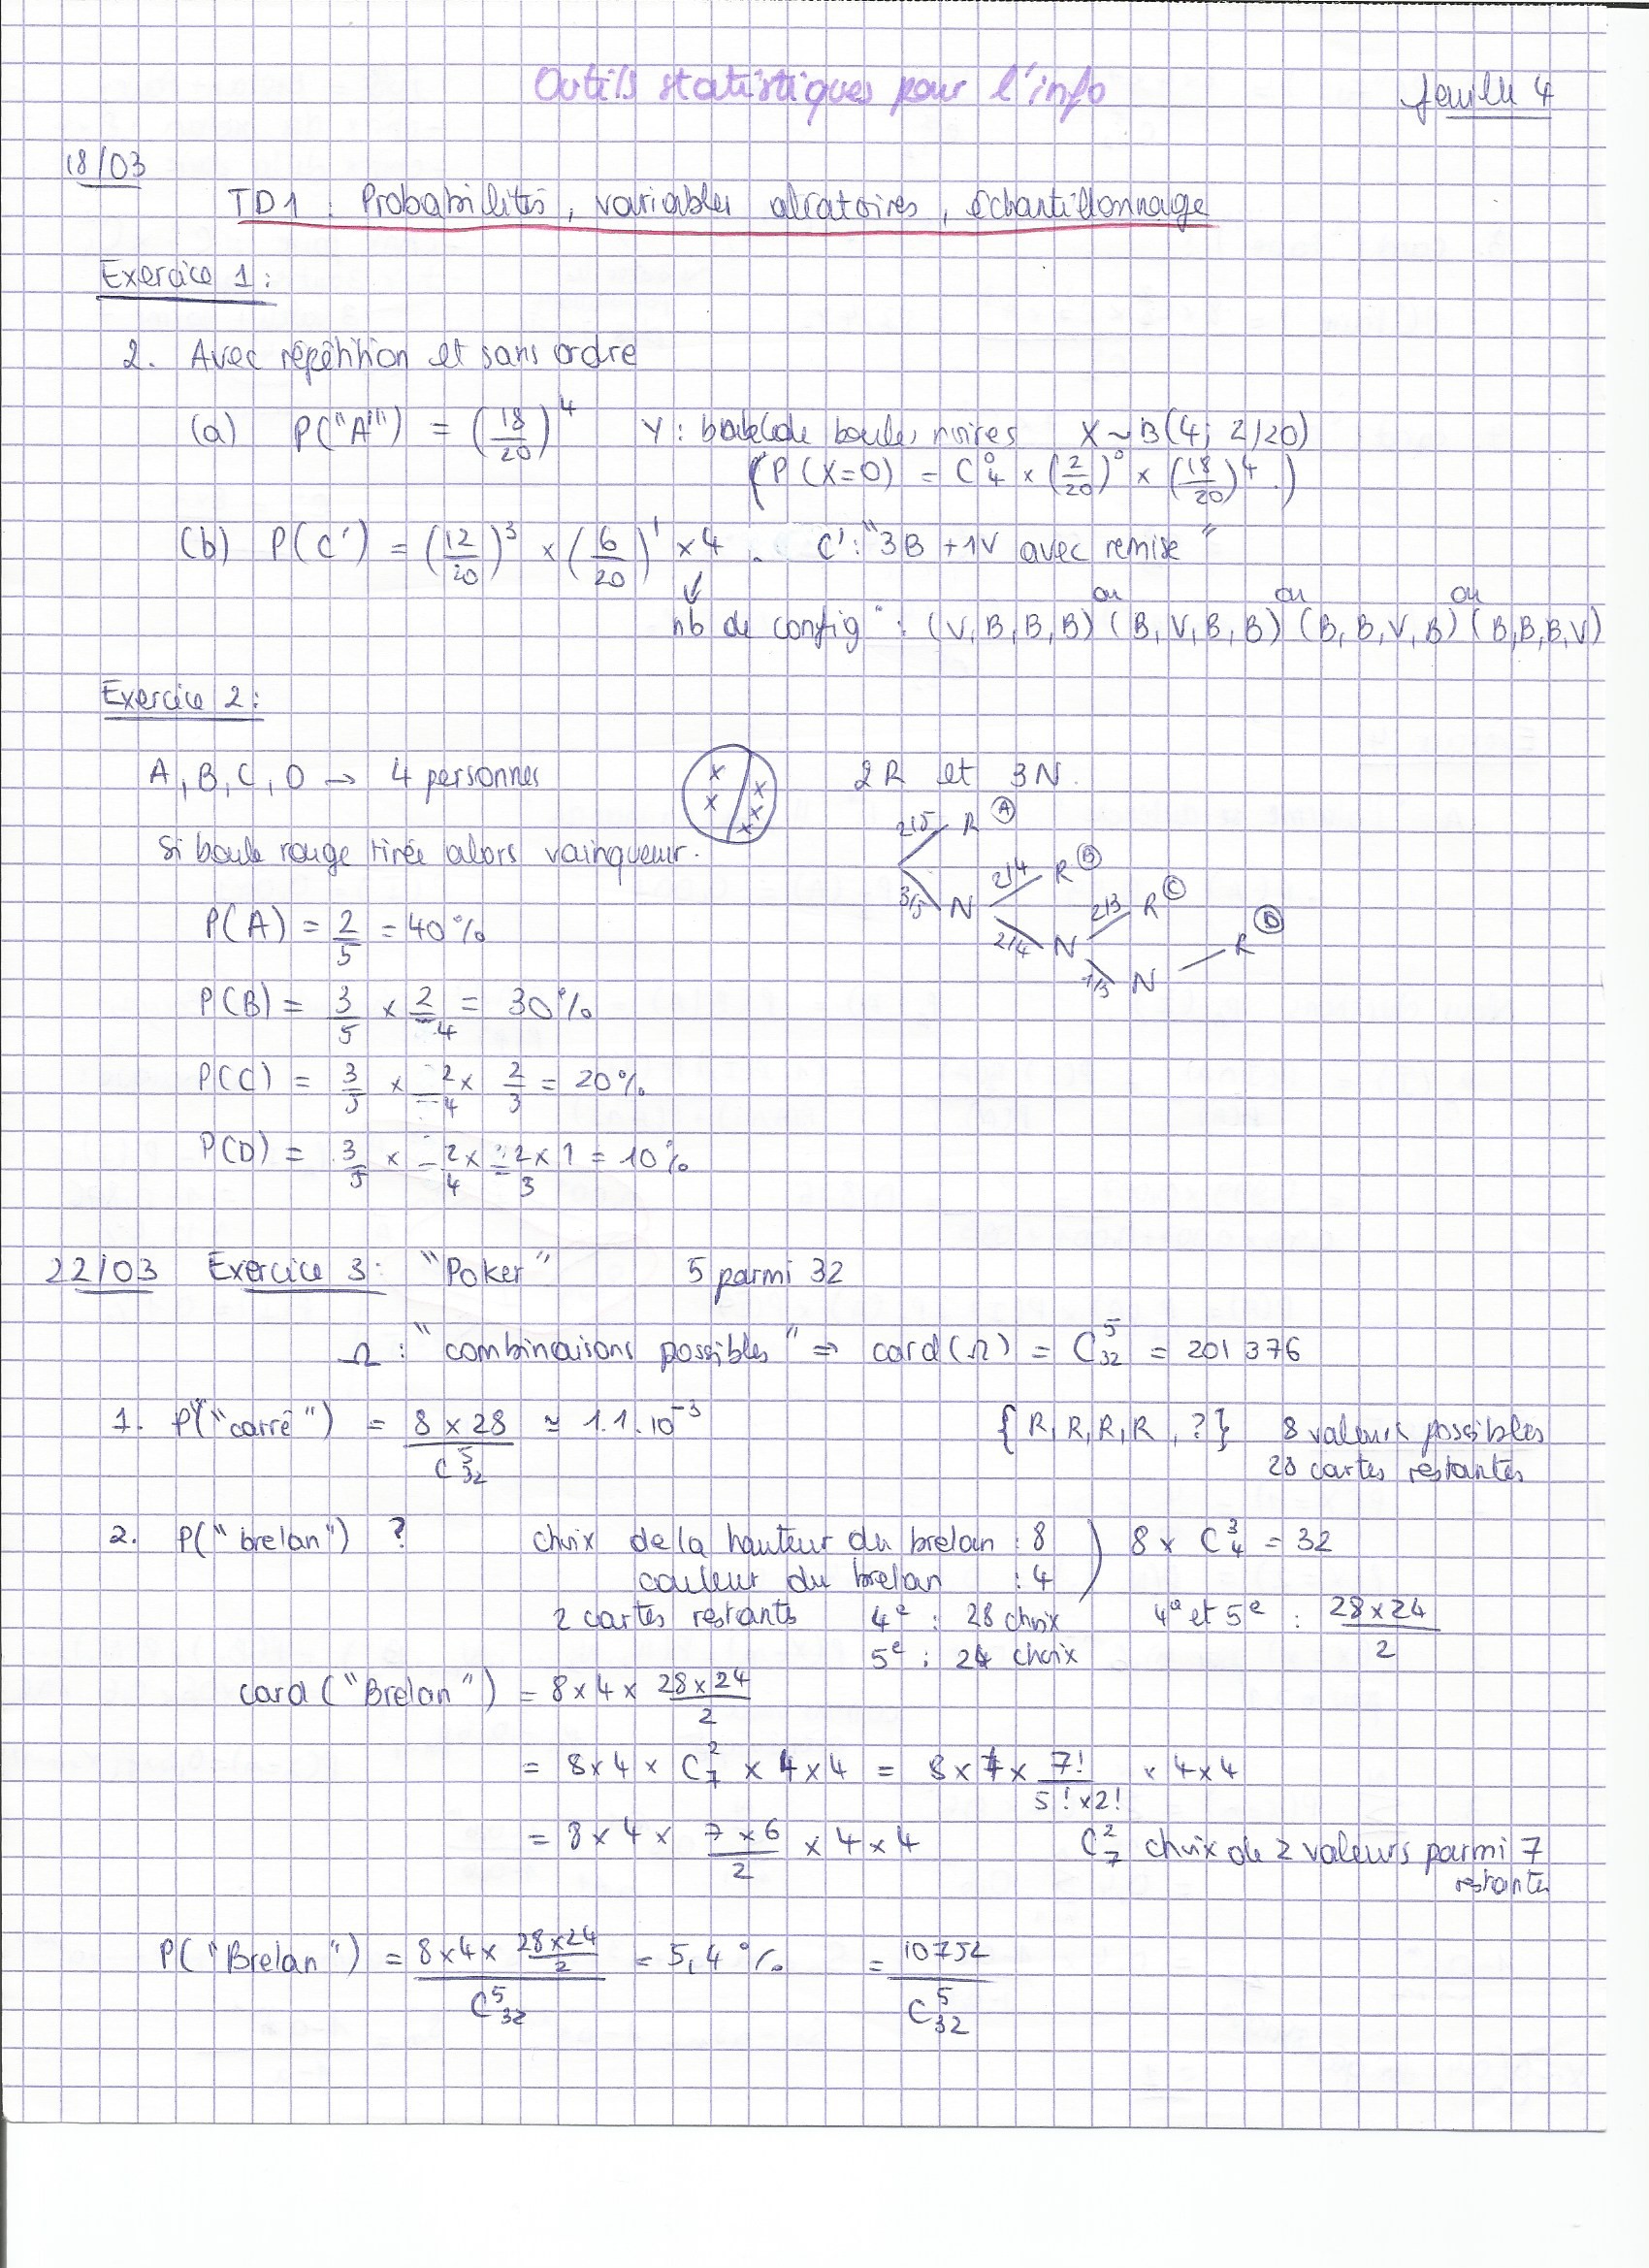 Outils statistiques pour l'info
feuille 4
18/03
TD1 : Probabilités, variables aléatoires, échantillonnage
Exercice 1 :
2. Avec répétition et sans ordre
(a) P("A'") = (18/20)^4 Y : de boules noires X ~ B(4; 2/20)
(P(X=0) = C_4^0 × (2/20)^0 × (18/20)^4.)
(b) P(C') = (12/20)^3 × (6/20)^1 × 4. C' : "3B + 1V avec remise"
↓ ou ou ou
nb de config° : (V, B, B, B) (B, V, B, B) (B, B, V, B) (B, B, B, V)
Exercice 2 :
A, B, C, D → 4 personnes x x x x x 2R et 3N.
Si boule rouge tirée alors vainqueur.
2/5 R (A)
3/5 N 2/4 R (B)
2/4 N 2/3 R (C)
1/3 N R (D)
P(A) = 2/5 = 40%
P(B) = 3/5 × 2/4 = 30%
P(C) = 3/5 × 2/4 × 2/3 = 20%
P(D) = 3/5 × 2/4 × 2/3 × 1 = 10%
22/03 Exercice 3 : "Poker" 5 parmi 32
Ω : "combinaisons possibles" ⇒ card(Ω) = C_32^5 = 201 376
1. P("carré") = 8 × 28 / C_32^5 ≃ 1.1.10^-3 {R, R, R, R, ?} 8 valeurs possibles
28 cartes restantes
2. P("brelan") ? choix de la hauteur du brelan : 8 ) 8 × C_4^3 = 32
couleur du brelan : 4
2 cartes restants 4e : 28 choix 4e et 5e : 28×24 / 2
5e : 24 choix
card("Brelan") = 8×4× 28×24 / 2
= 8×4 × C_7^2 × 4×4 = 8×4× 7! / 5!×2! × 4×4
= 8×4× 7×6 / 2 × 4×4 C_7^2 choix de 2 valeurs parmi 7
restantes
P("Brelan") = 8×4× 28×24/2 / C_32^5 = 5,4% = 10752 / C_32^5